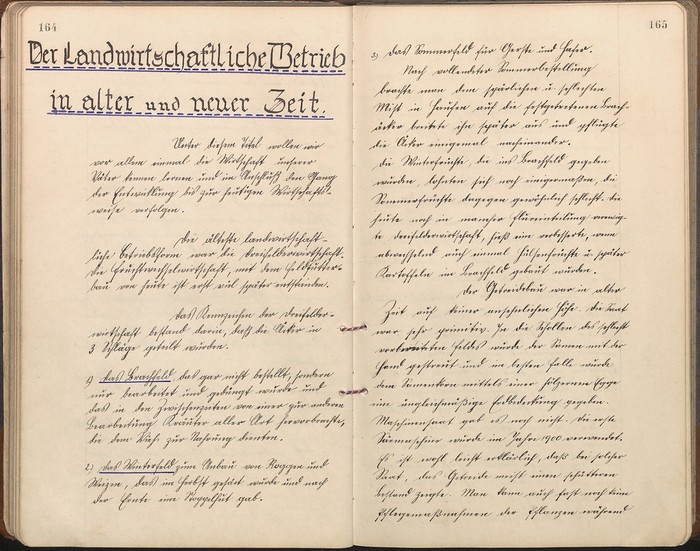 164
Der Landwirtschaftliche Betrieb
in alter und neuer Zeit.
Unter diesem Titel wollen wir
vor allem einmal die Wirtschaft unserer
Väter kennen lernen und im Anschluß den Gang
der Entwicklung bis zur heutigen Wirtschafts-
weise verfolgen.
Die älteste landwirtschaft-
liche Betriebsform war die Dreifelderwirtschaft.
Die Fruchtwechselwirtschaft, mit dem Feldfutter-
bau von heute ist erst viel später entstanden.
Das Kennzeichen der Dreifelder-
wirtschaft bestand darin, daß die Äcker in
3 Schläge geteilt wurden.
1) das Brachfeld, das gar nicht bestellt, sondern
nur bearbeitet und gedüngt wurde und
das in den Zwischenzeiten von einer zur anderen
Bearbeitung Kräuter aller Art hervorbrachte,
die dem Vieh zur Nahrung dienten.
2) das Winterfeld zum Anbau von Roggen und
Weizen, das im Herbst gesät wurde und nach
der Ernte eine Stoppelhut gab.
165
3) das Sommerfeld für Gerste und Hafer.
Nach vollendeter Sommerbestellung
brachte man den spärlichen und schlechten
Mist in Haufen auf die festgetretenen Brach-
äcker breitete ihn später aus und pflügte
die Äcker einigemal nacheinander.
Die Winterfrüchte, die ins Brachfeld gegeben
wurden, lohnten sich noch einigermaßen, die
Sommerfrüchte dagegen gewöhnlich schlecht. Die
heute noch in mancher Flureinteilung verewig-
te Dreifelderwirtschaft, hieß eine verbesserte, wenn
abwechselnd auch einmal Hülsenfrüchte und später
Kartoffeln im Brachfeld gebaut wurden.
Der Getreidebau war in alter
Zeit auf keiner ansehnlichen Höhe. Die Saat
war sehr primitiv. In die Schollen des schlecht
vorbereiteten Feldes wurde der Samen mit der
Hand gestreut und im besten Falle wurde
dem Samenkorn mittels einer hölzernen Egge
eine ungleichmäßige Erdbedeckung gegeben.
Maschinensaat gab es noch nicht. Die erste
Sämaschine wurde im Jahre 1900 verwendet.
Es ist wohl leicht erklärlich, daß bei solcher
Saat, das Getreide meist einen schütteren
Bestand zeigte. Man kann auch fast noch keine
Pflegemaßnahmen der Pflanzen während